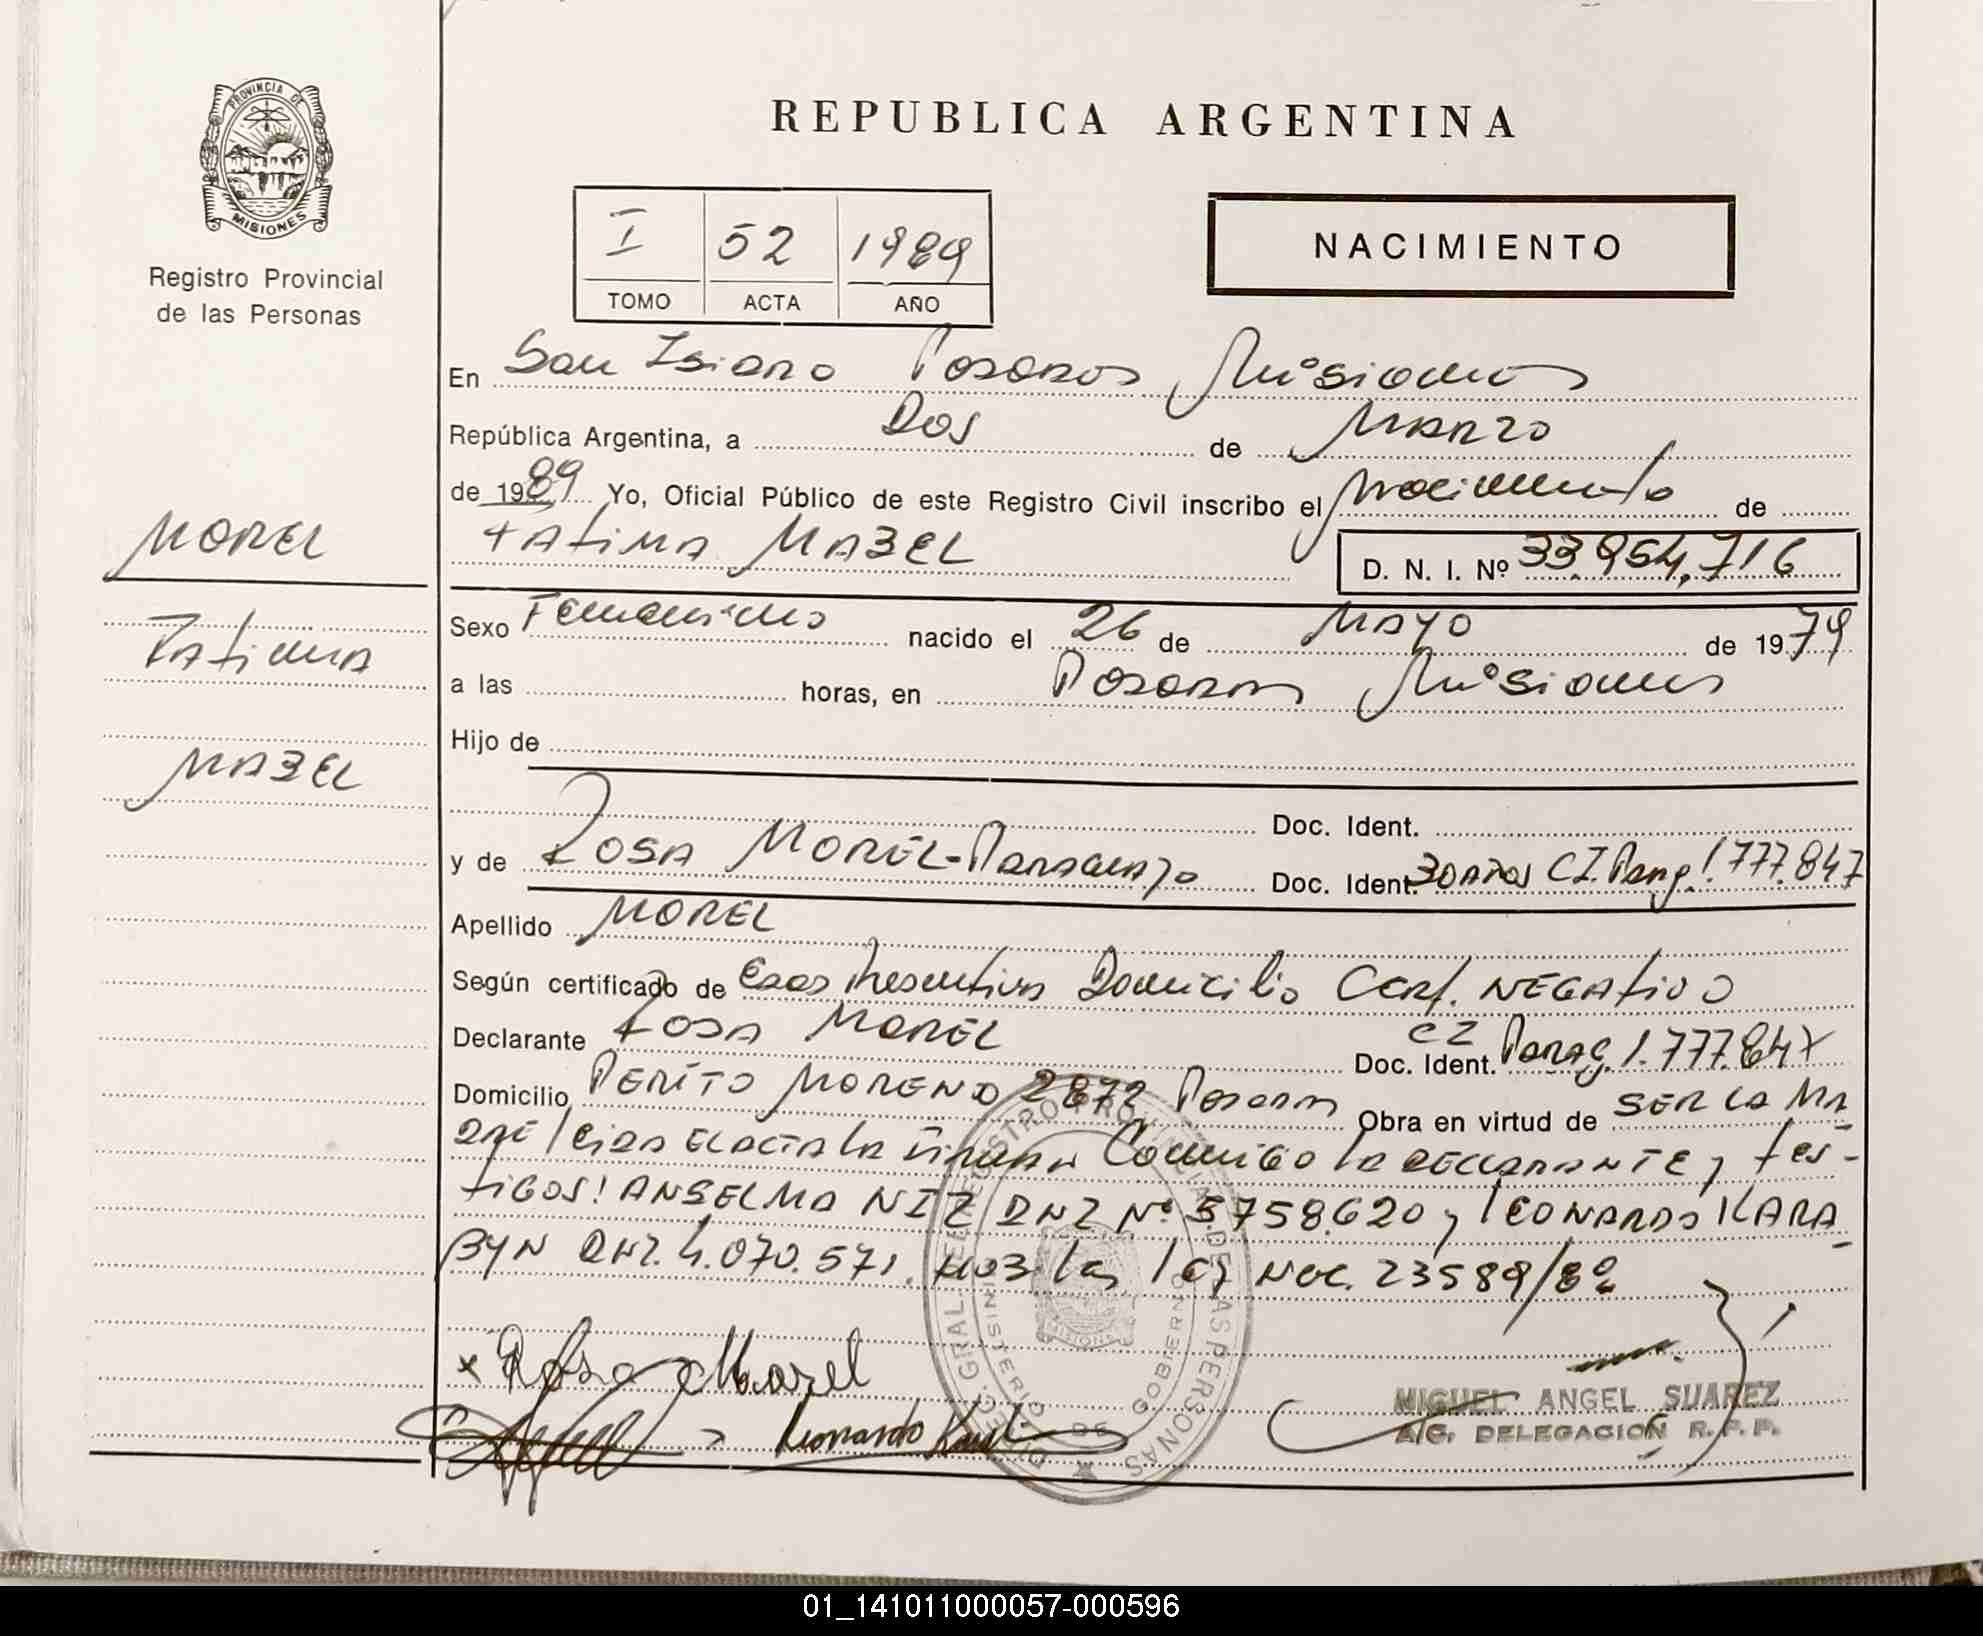 PROVINCIA DE
MISIONES
Registro Provincial
de las Personas
REPUBLICA ARGENTINA
I 52 1989
TOMO ACTA AÑO
NACIMIENTO
En San Isidro Posadas Misiones
República Argentina, a Dos de Marzo
de 1989 Yo, Oficial Público de este Registro Civil inscribo el Nacimiento de
MOREL
FATIMA MABEL D. N. I. Nº 33.954.716
Fatima
Sexo Femenino nacido el 26 de Mayo de 1979
a las horas, en Posadas Misiones
MABEL
Hijo de
Doc. Ident.
y de Rosa MOREL-Paraguayo Doc. Ident. 30 años CI. Parag. 1.777.847
Apellido MOREL
Según certificado de Domicilio Cert. NEGATIVO
Declarante Rosa MOREL Doc. Ident. CI Parag. 1.777.847
Domicilio PERITO MORENO 2872 Posadas Obra en virtud de SER LA MA
DRE Leida el acta la firman Conmigo la DECLARANTE y tes-
tigos: ANSELMA NIZ DNI Nº 3.758.620 y LEONARDO KARA
BYN DNI. 4.070.571. Ley Nac. 23589/8
x Rosa Morel
Leonardo
MIGUEL ANGEL SUAREZ
A/C. DELEGACION R.P.P.
DIREC. GRAL. DEL REGISTRO PROVINCIAL DE LAS PERSONAS
MINISTERIO DE GOBIERNO
MISIONES
01_141011000057-000596